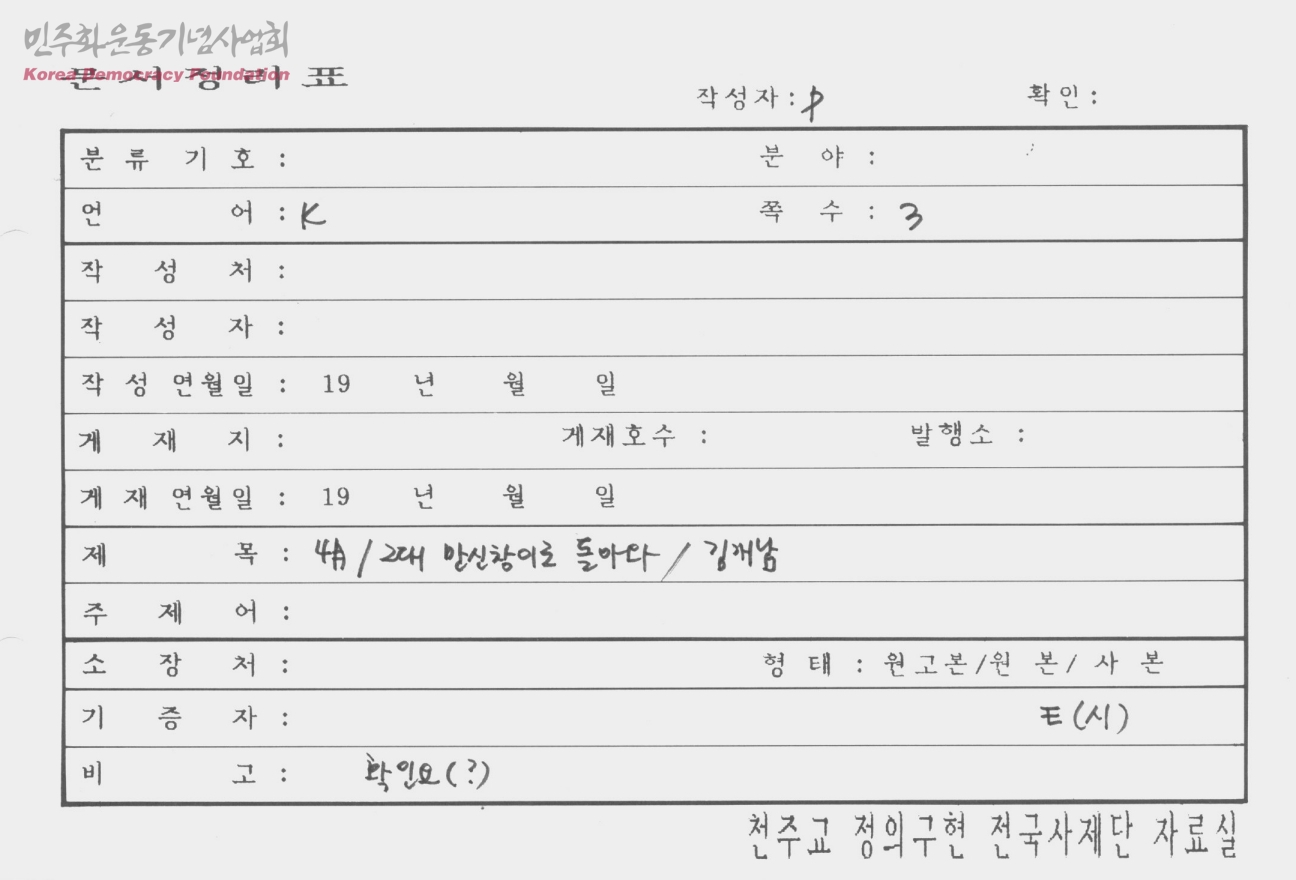 민주화운동기념사업회
Korea Democracy Foundation
문서정리표
작성자 : P 확인 :
분류 기호 : 분 야 :
언 어 : K 쪽 수 : 3
작 성 처 :
작 성 자 :
작 성 연월일 : 19 년 월 일
게 재 지 : 게재호수 : 발행소 :
게 재 연월일 : 19 년 월 일
제 목 : / 그대 만신창이로 돌아와 / 김해남
주 제 어 :
소 장 처 : 형 태 : 원고본/원 본/ 사 본
기 증 자 : (시)
비 고 : 확인요(?)
천주교 정의구현 전국사제단 자료실